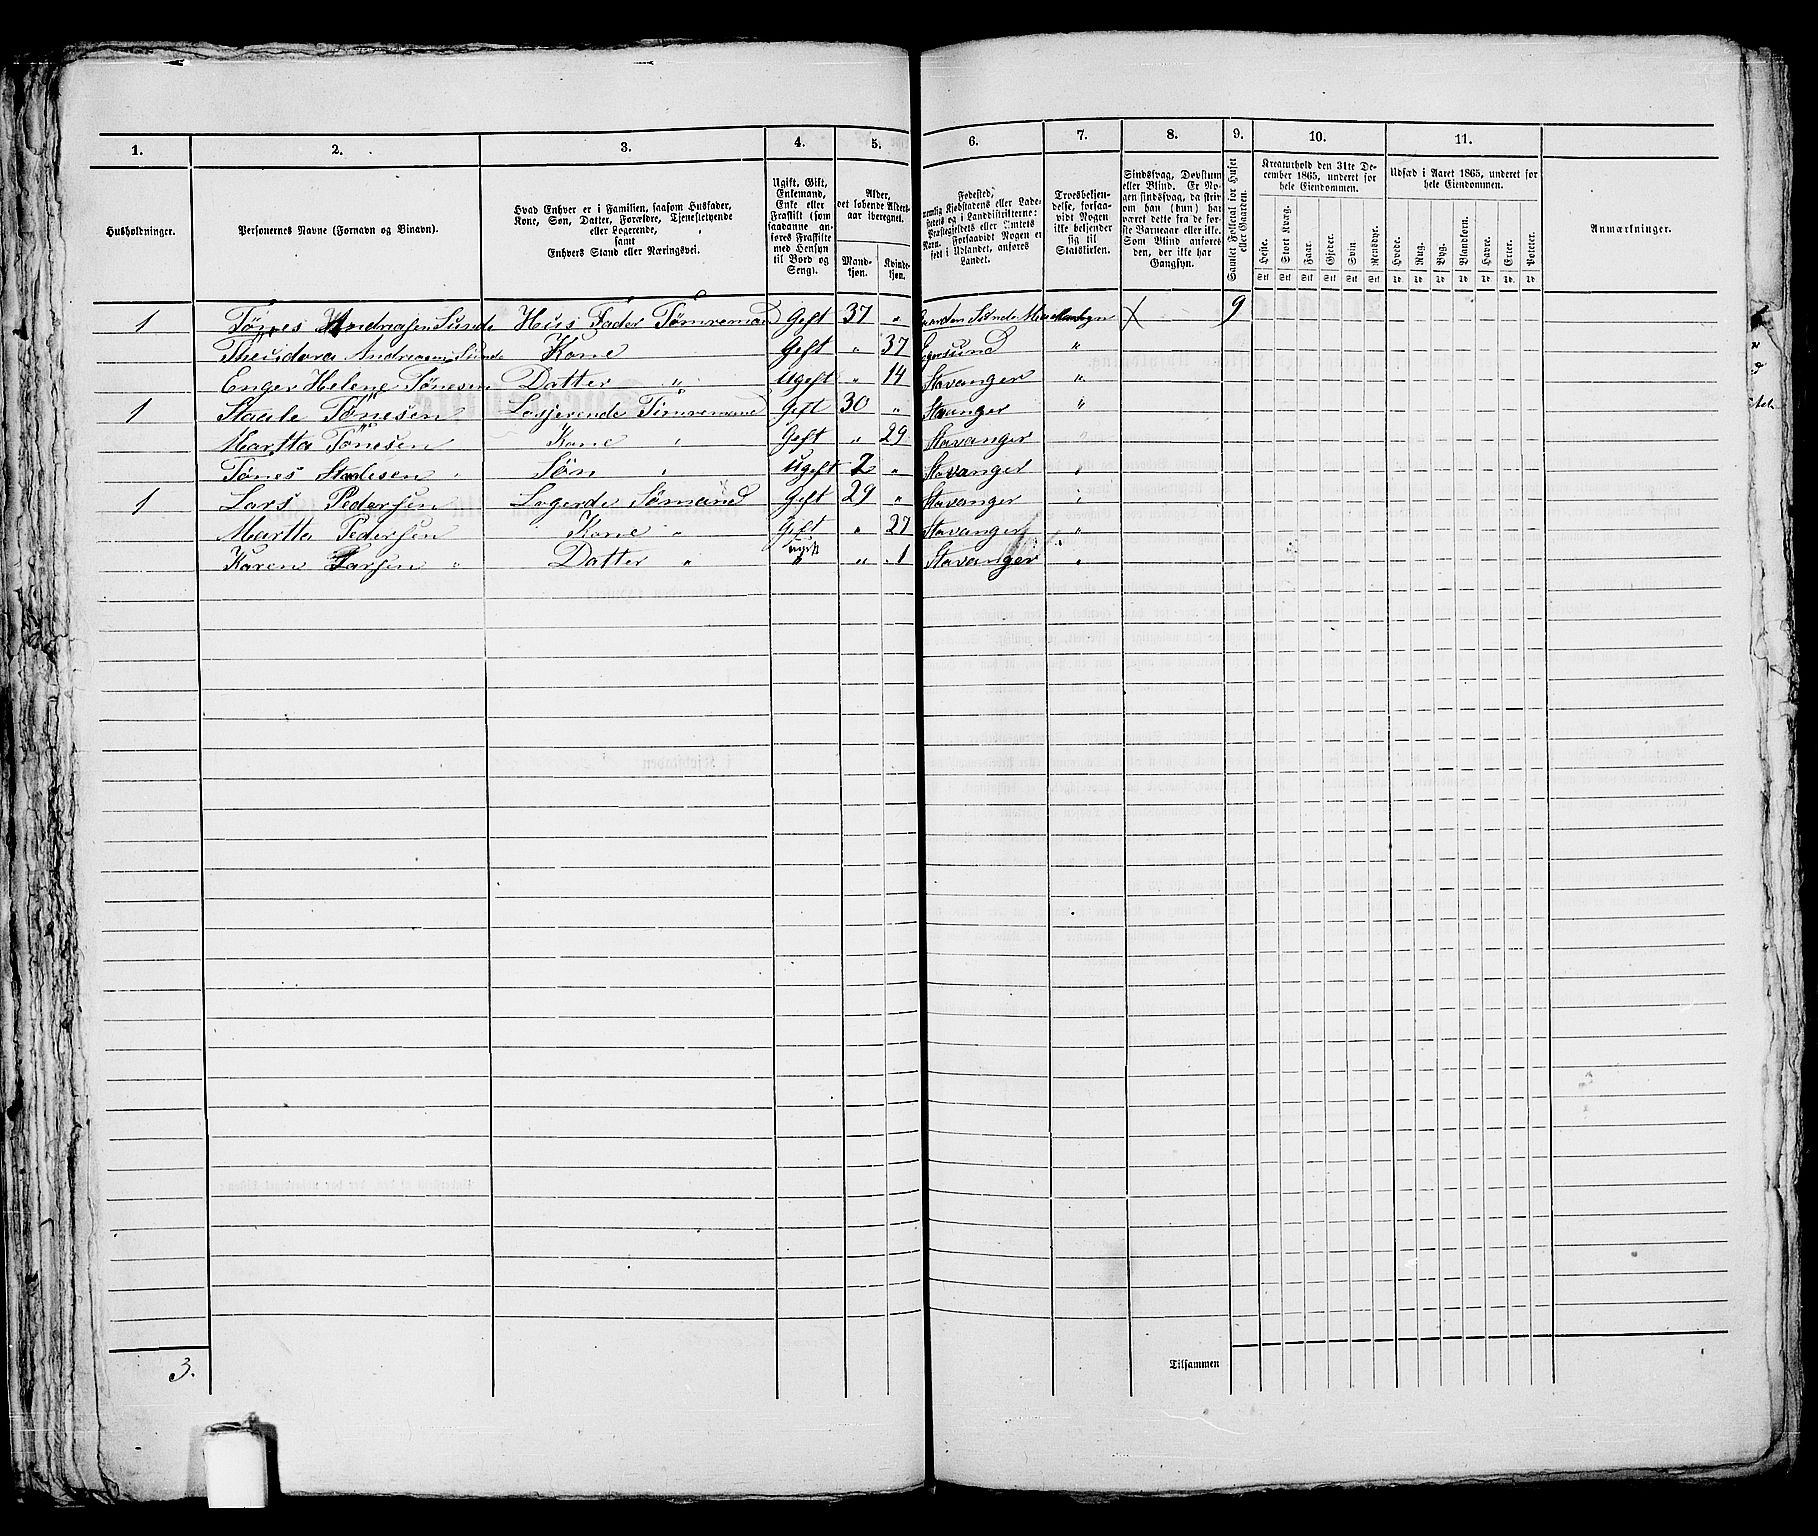 1. 2. 3. 4. 5. 6. 7. 8. 9. 10. 11.
Husholdninger.
Personernes Navne (Fornavn og Binavn).
Hvad Enhver er i Familien, saasom Husfader,
Kone, Søn, Datter, Forældre, Tjenestetyende
eller Logerende,
samt
Enhvers Stand eller Næringsvei.
Ugift, Gift,
Enkemand,
Enke eller
Fraskilt (som
saadanne an-
føres Fraskilte
med Hensyn
til Bord og
Seng).
Alder,
det løbende Alders-
aar iberegnet.
Mand-
kjøn.
Kvinde-
kjøn.
Fødested,
nemlig Kjøbstadens eller Lade-
stedets og i Landdistrikterne:
Præstegjeldets eller Amtets
Navn. Forsaavidt Nogen er
født i Udlandet, anføres
Landet.
Troesbekjen-
delse, forsaa-
vidt Nogen
ikke bekjender
sig til
Statskirken.
Sindssvag, Døvstum
eller Blind. Er No-
gen sindssvag, da skriv
om han (hun) har
været dette fra de før-
ste Barneaar eller ikke.
Som Blind anføres
den, der ikke har
Gangsyn.
Samlet Folketal for Huset
eller Gaarden.
Kreaturhold den 31te De-
cember 1865, underet for
hele Eiendommen.
Heste. Stort Kvæg. Faar. Gjeder. Svin Rensdyr.
Stk Stk Stk Stk Stk Stk
Udsæd i Aaret 1865, underet for
hele Eiendommen.
Hvede. Rug. Byg. Blandkorn. Havre. Erter. Poteter.
Td. Td. Td. Td. Td. Td. Td.
Anmærkninger.
1 Tönes Andreasen Sunde Hus Fader Tömremand Geft 37 " Gaarden X 9
Theidora Andreasen Sunde Kone Geft " 37 Egersund "
Enger Helene Tönesen Datter " Ugeft " 14 Stavanger "
1 Staale Tönesen Losjerende Timremand Geft 30 " Stavanger "
Martta Tönesen Kone " Geft " 29 Stavanger "
Tönes Stalesen Sön " Ugeft 2 " Stavanger "
1 Lars Pedersen Logerde Sömand Geft 29 " Stavanger "
Martta Pedersen Kone " Geft " 27 Stavanger "
Karen Larsen " Datter " " " 1 Stavanger "
3. Tilsammen